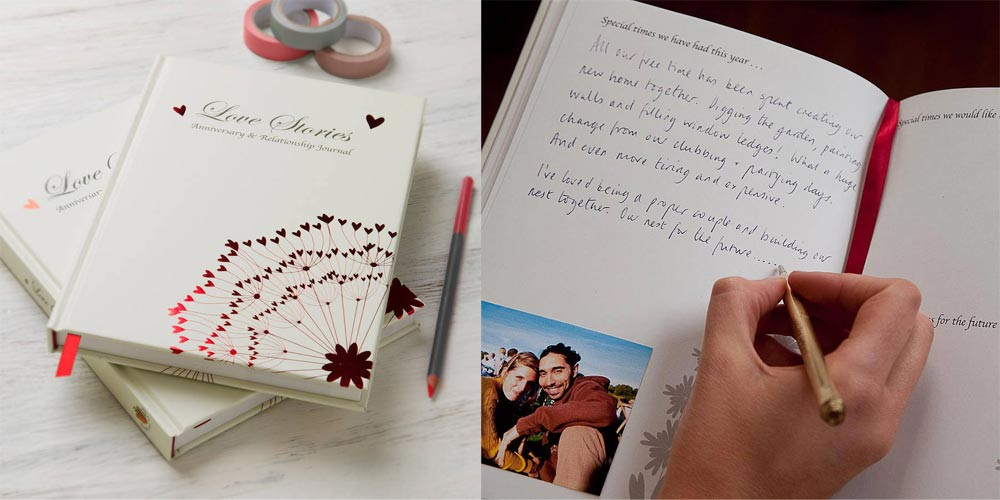 Love Stories
Anniversary & Relationship Journal
Love
Anniversary
Special times we have had this year...
All our free time has been spent creating our
new home together. Digging the garden, painting
walls and filling window ledges! What a huge
change from our clubbing + partying days.
And even more tiring and expensive.
I've loved being a proper couple and building our
nest together. Our nest for the future......
Special times we would like
for the future